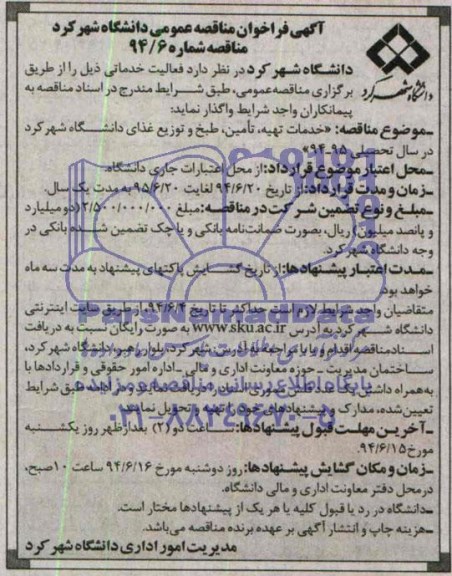 آگهی فراخوان مناقصه عمومی دانشگاه شهر کرد
مناقصه شماره ۹۴/۶
دانشگاه شهر کرد
دانشگاه شهر کرد در نظر دارد فعالیت خدماتی ذیل را از طریق
برگزاری مناقصه عمومی، طبق شرایط مندرج در اسناد مناقصه به
پیمانکاران واجد شرایط واگذار نماید:
ـموضوع مناقصه: «خدمات تهیه، تأمین، طبخ و توزیع غذای دانشگاه شهر کرد
در سال تحصیلی ۹۵ـ۹۴»
ـمحل اعتبار موضوع قرارداد: از محل اعتبارات جاری دانشگاه.
ـزمان و مدت قرارداد: از تاریخ ۹۴/۶/۲۰ لغایت ۹۵/۶/۲۰ به مدت یک سال.
ـمبلغ و نوع تضمین شرکت در مناقصه: مبلغ ۲/۵۰۰/۰۰۰/۰۰۰ (دو میلیارد
و پانصد میلیون) ریال، بصورت ضمانت‌نامه بانکی و یا چک تضمین شده بانکی در
وجه دانشگاه شهر کرد.
ـمدت اعتبار پیشنهادها: از تاریخ گشایش پاکتهای پیشنهاد به مدت سه ماه
خواهد بود
متقاضیان واجد شرایط لازم است حداکثر تا تاریخ ۹۴/۶/۴ از طریق سایت اینترنتی
دانشگاه شهر کرد به آدرس www.sku.ac.ir به صورت رایگان نسبت به دریافت
اسناد مناقصه اقدام و یا با مراجعه به آدرس: شهر کرد، بلوار رهبر، دانشگاه شهر کرد،
ساختمان مدیریت ـ حوزه معاونت اداری و مالی ـ اداره امور حقوقی و قراردادها با
به همراه داشتن یک عدد اسناد را دریافت نمایند و در ادامه طبق شرایط
تعیین شده، مدارک و پیشنهادهای خود را تهیه و تحویل نمایند.
ـآخرین مهلت قبول پیشنهادها: ساعت دو (۲) بعدازظهر روز یکشنبه
مورخ ۹۴/۶/۱۵.
ـزمان و مکان گشایش پیشنهادها: روز دوشنبه مورخ ۹۴/۶/۱۶ ساعت ۱۰ صبح،
در محل دفتر معاونت اداری و مالی دانشگاه.
ـدانشگاه در رد یا قبول کلیه یا هر یک از پیشنهادها مختار است.
ـهزینه چاپ و انتشار آگهی بر عهده برنده مناقصه می‌باشد.
مدیریت امور اداری دانشگاه شهر کرد
ParsNamadData
پایگاه اطلاع رسانی مناقصه و مزایده
۰۲۱-۸۸۳۴۹۶۷۰-۵